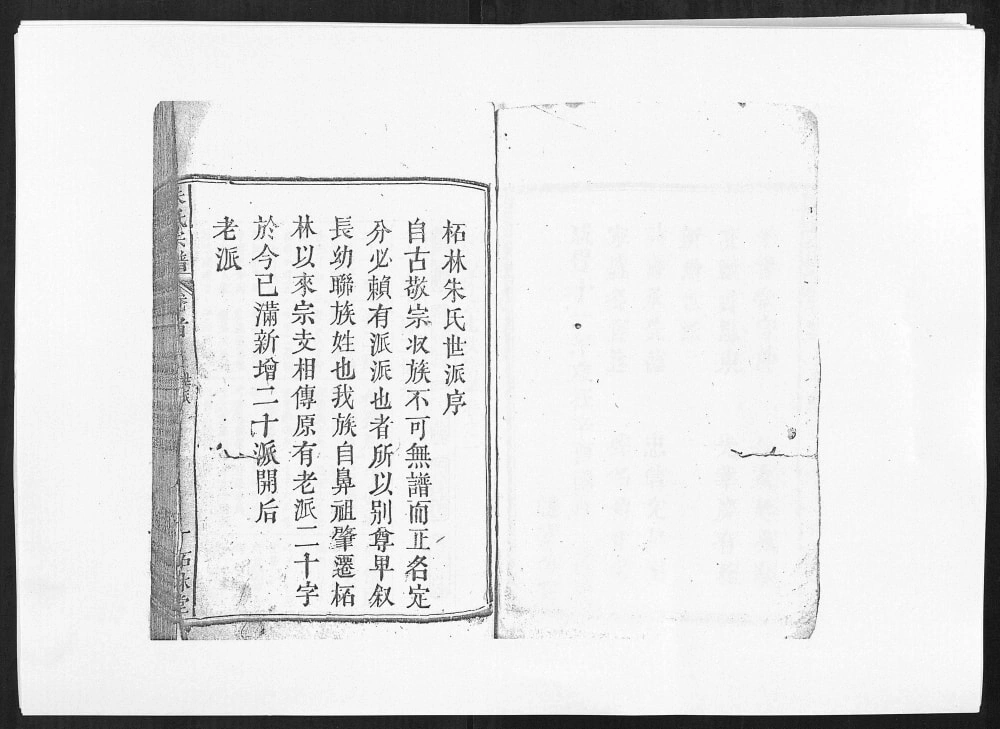 柘林朱氏世派序
自古敬宗收族不可無譜而正名定
分必賴有派派也者所以别尊卑叙
長幼聯族姓也我族自鼻祖肇遷柘
林以來宗支相傳原有老派二十字
於今已滿新增二十派開后
老派
朱氏宗譜 卷首 世派 一 柘林堂